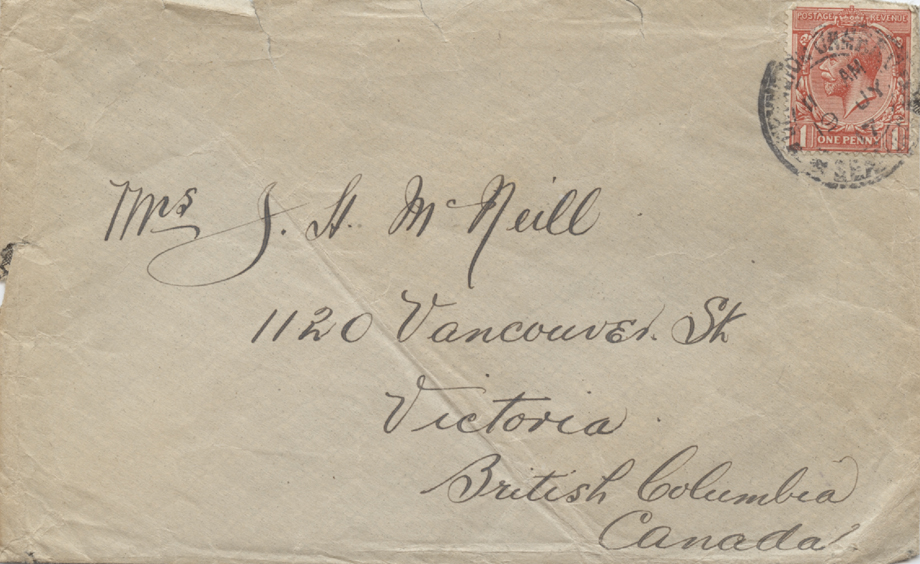 POSTAGE REVENUE
AM
JY
1 ONE PENNY 1
Mrs J. H. McNeill
1120 Vancouver St
Victoria
British Columbia
Canada